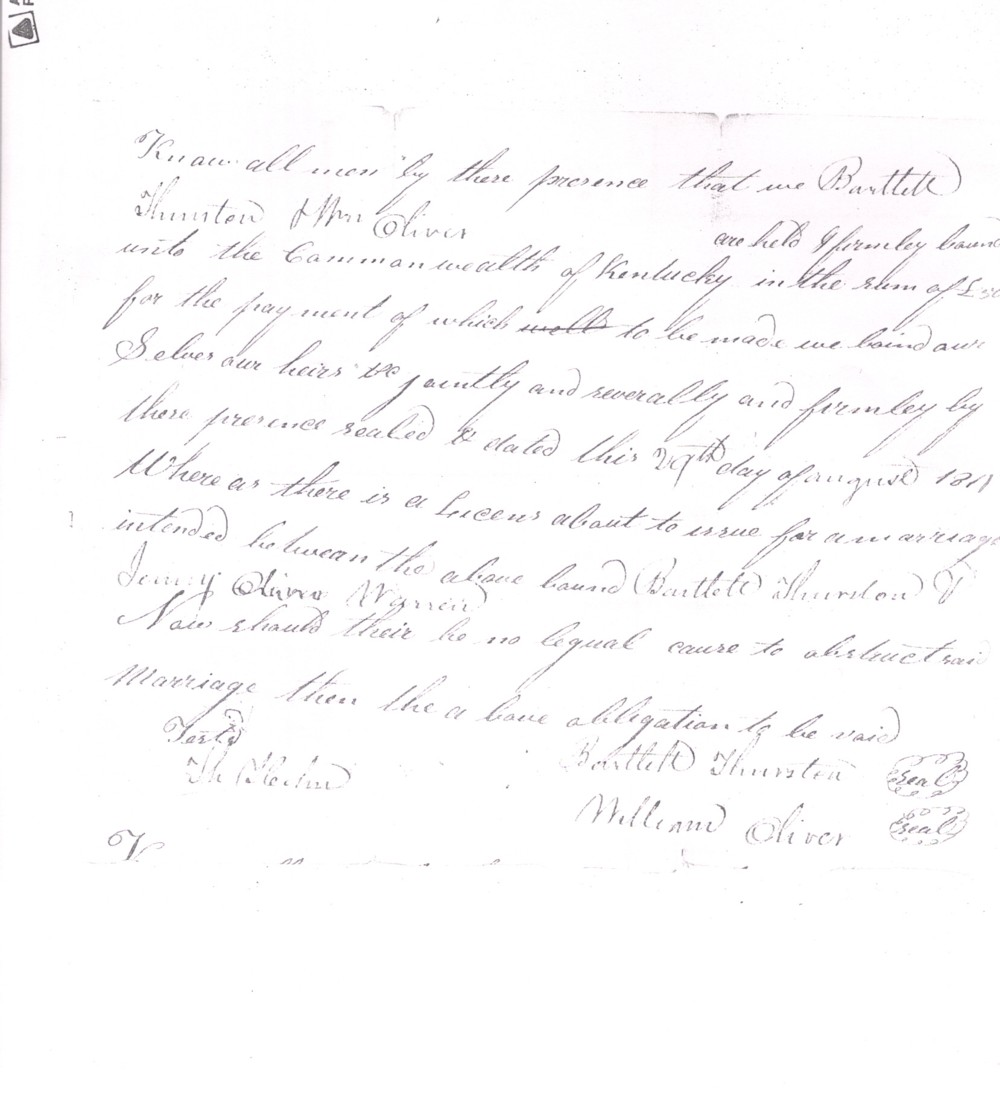 Know all men by these presence that we Bartlett
Thurston & Wm Oliver are held & firmley bound
unto the Commonwealth of Kentucky in the sum of £50
for the payment of which to be made we baind our
Selves our heirs &c jointly and severally and firmley by
these presence sealed & dated this 29th day of august 1811
Where as there is a Licens about to issue for a marriage
intended between the above bound Bartlett Thurston &
Jenny Oliver
Now should their be no legual cause to obstruct said
Marriage then the a bove obligation to be void
Bartlett Thurston seal
William Oliver seal